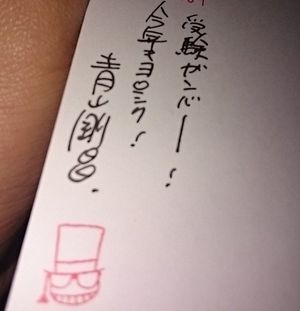 受験ガンバー!
今年もヨロシク!
青山剛昌.